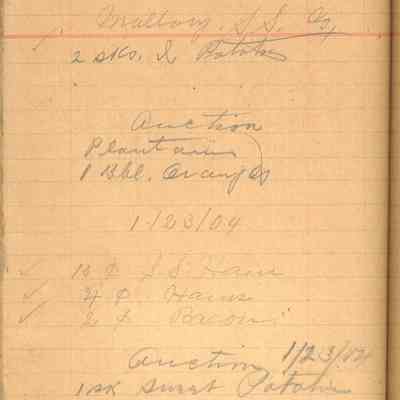 Mallory, S.S. Co,
2 sks. Potatoes
Auction
Plantains
1 Bbl. Oranges
1/23/04
S.S. Hams
4 Hams
2 Bacon
Auction 1/23/04
1 sk Sweet Potatoes